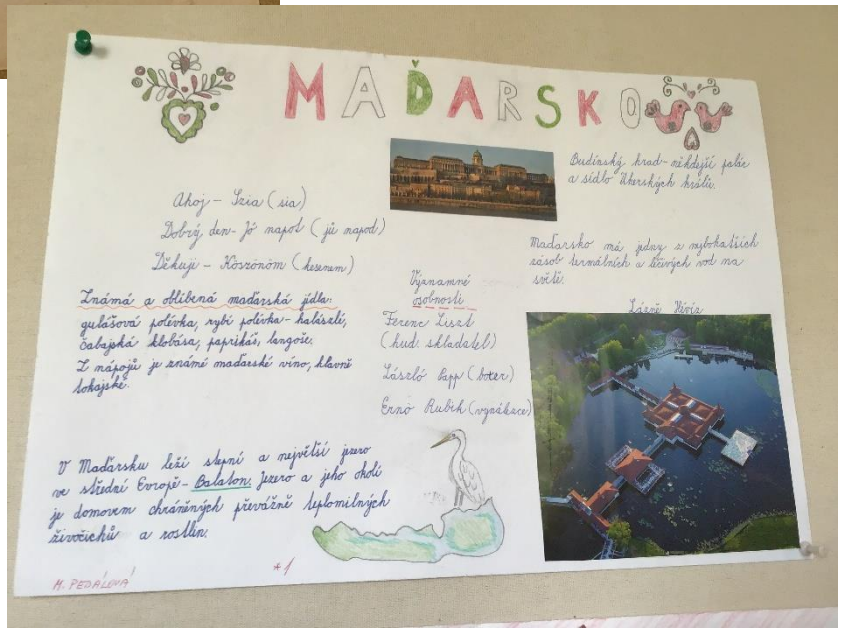 MAĎARSKO
Budínský hrad - někdejší palác
a sídlo Uherských králů.
Ahoj - Szia (sia)
Dobrý den - Jó napot (jó napod)
Děkuji - Köszönöm (kesenem)
Maďarsko má jedny z nejbohatších
zásob termálních a léčivých vod na
světě.
Lázně Hévíz
Známá a oblíbená maďarská jídla:
gulášová polévka, rybí polévka - halászlí,
čabajská klobása, paprikáš, langoše.
Z nápojů je známé maďarské víno, hlavně
tokajské.
Významné
osobnosti
Ferenc Liszt
(hud. skladatel)
László Papp (boxer)
Ernö Rubik (vynálezce)
V Maďarsku leží stepní a největší jezero
ve střední Evropě - Balaton. Jezero a jeho okolí
je domovem chráněných převážně teplomilných
živočichů a rostlin.
*1